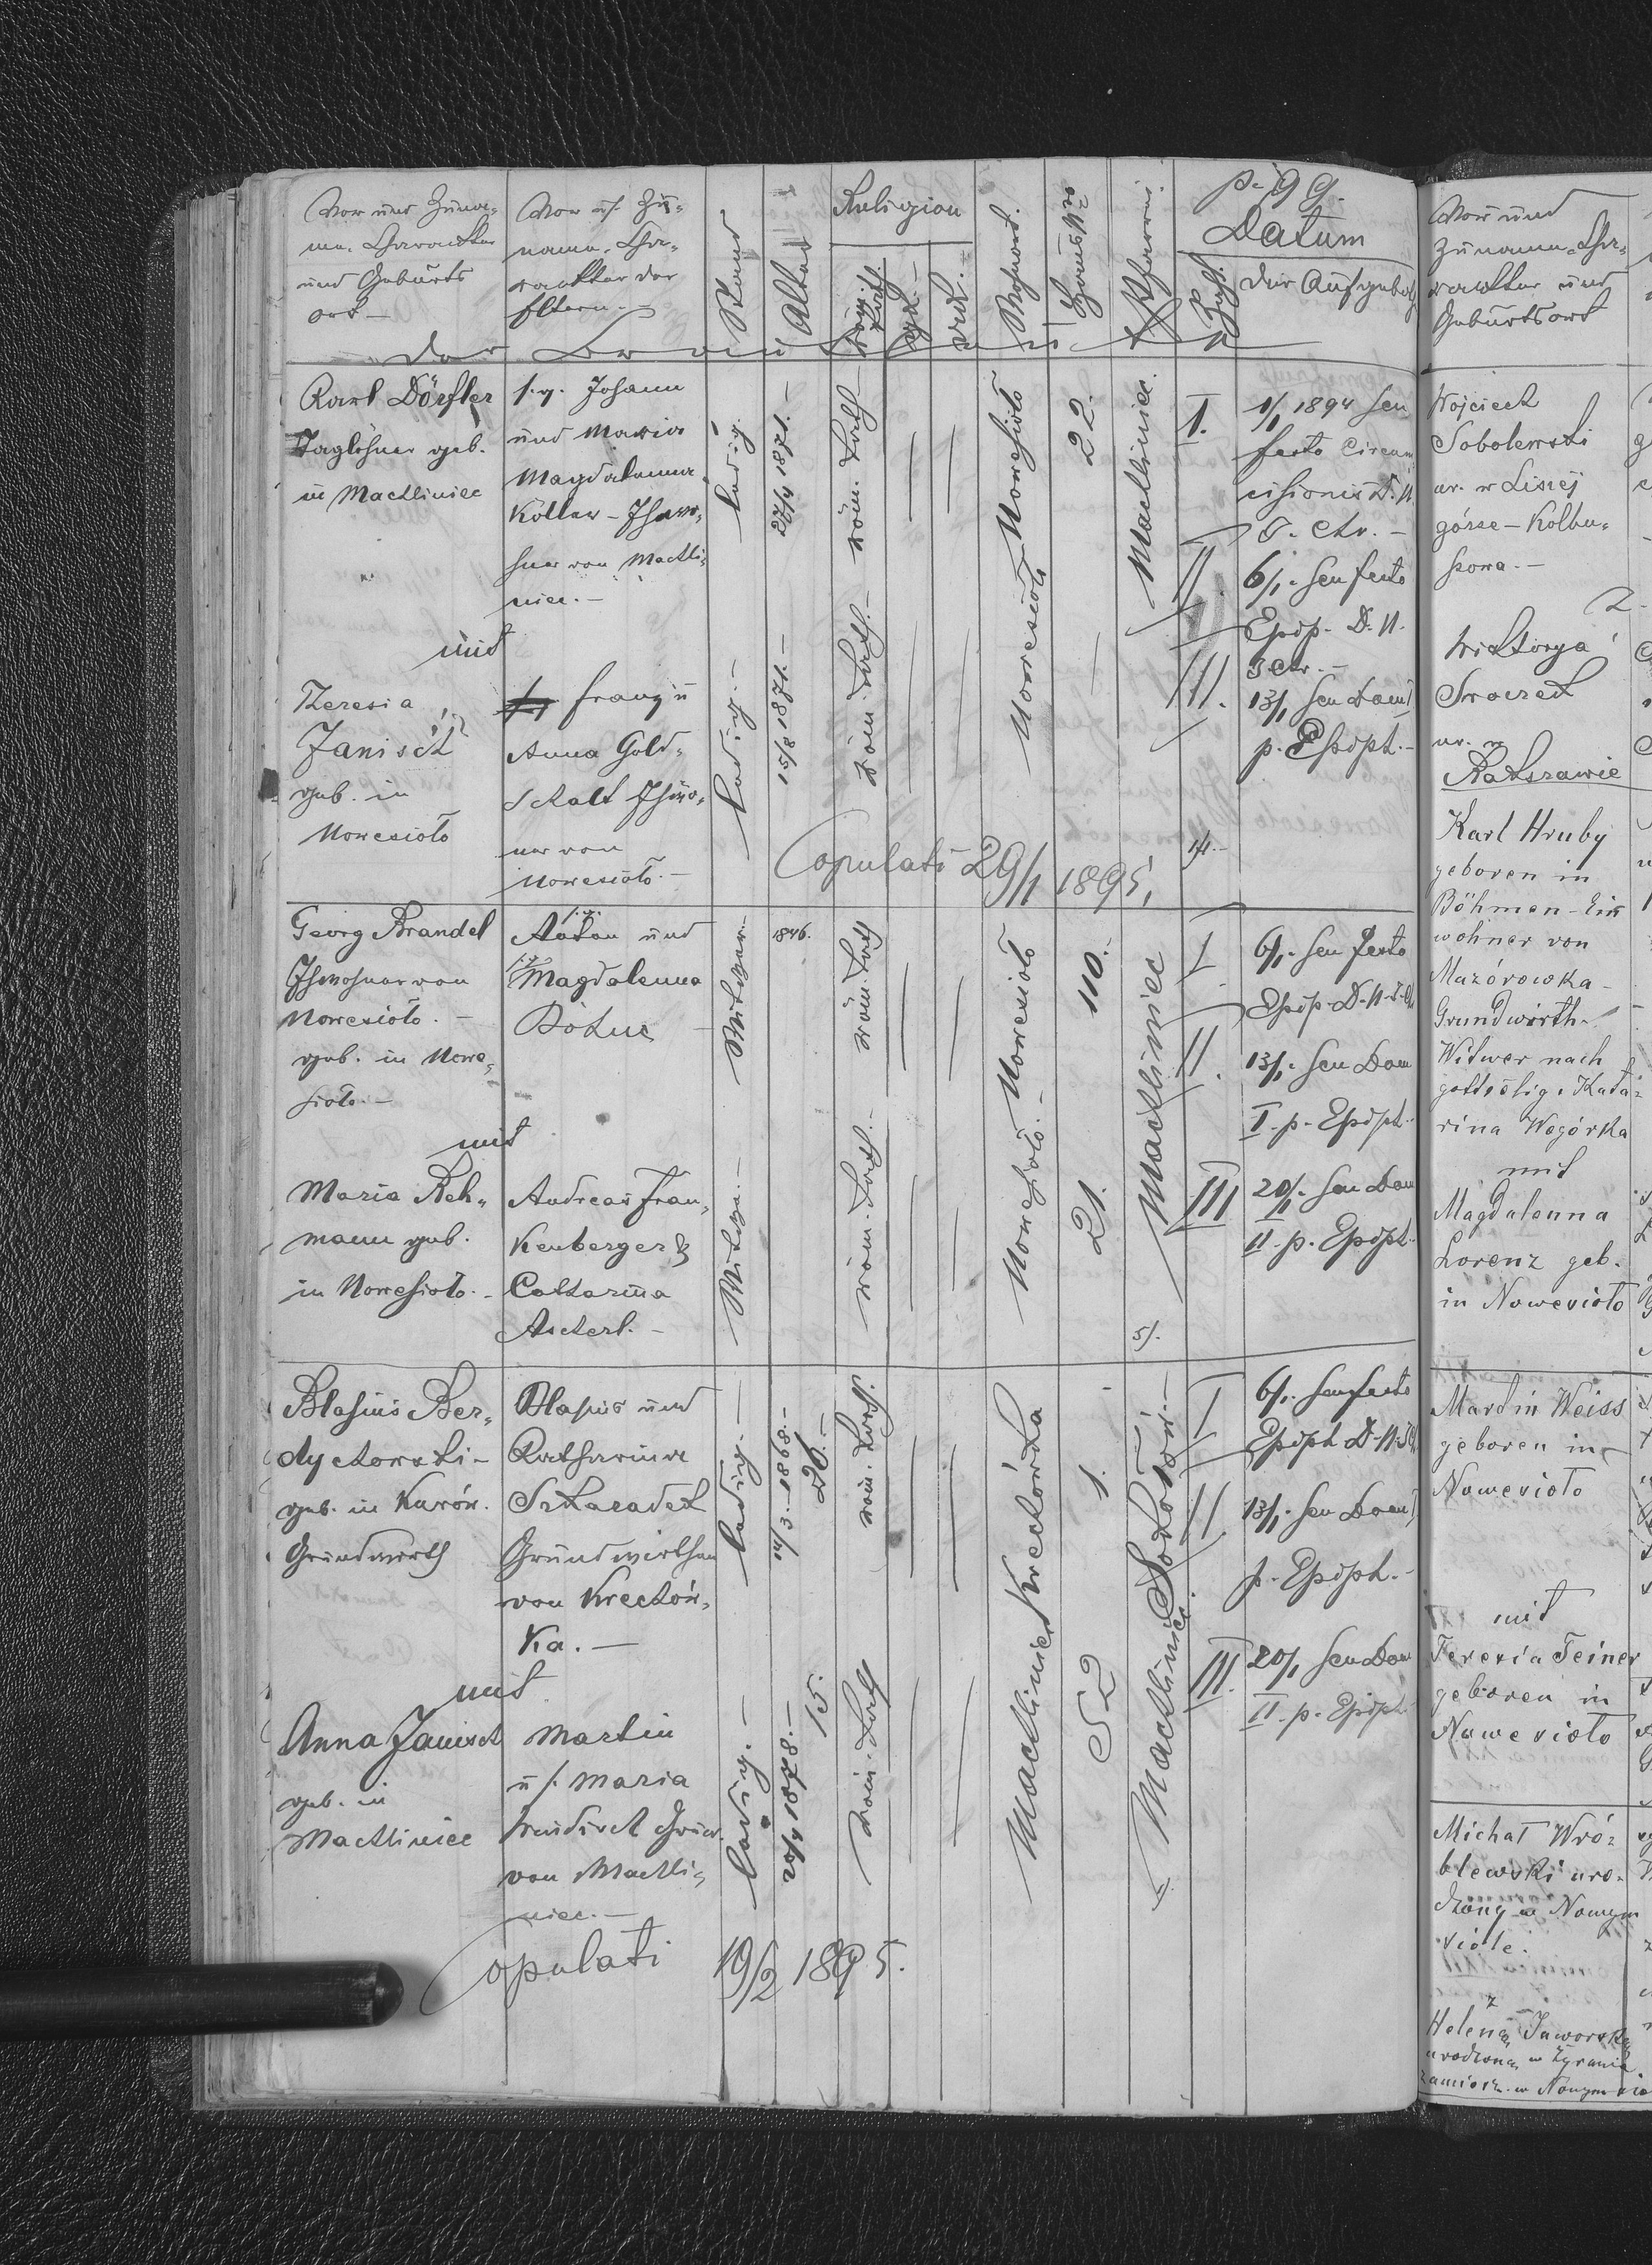 p. 99.
Vor und Zuna-
me. Charackter
und Geburts
ort -
Vor u/ Zu-
name. Cha-
rackter der
Eltern. -
Stand
Alter
Religion
röm. kath.
Wohnort.
HausNro
Pfarrei.
Zahl.
Datum
der Aufgebote
der Brautleute
Karl Dörfler
Taglöhner geb.
in Machliniec
Johann
und Maria
Magdalenna
Koller - Ihwo-
hner von Machli-
niec. -
ledig.
27/4 1871. -
röm. kath
Nowesioło
22.
Machliniec.
I.
1/1 1894 in
festo Circum
cisionis D. N.
J. Chr. -
II.
6/1. in festo
Epiph. D. N.
J Chr. -
III.
13/1 in Dom I
p. Epipht. -
mit
Theresia
Janisch
geb. in
Nowesioło
Franz u
Anna Gold-
schalt Ihwo-
ner von
Nowesioło. -
ledig. -
15/8 1871. -
röm. kath. -
Nowesioło
4. -
Copulati 29/1 1895,
Georg Brandel
Ihwohner von
Nowesioło. -
geb. in Nowe-
sioło. -
Anton und
Magdalenna
Böhm
Witwer. -
1846.
röm. kath
Nowesioło
110. -
Machliniec
I
6/1. in festo
Epiph. D. N. J. Ch
II.
13/1. in Dom
I. p. Epipht.
III
20/1. in Dom
II. p. Epipht.
mit
Maria Reh-
mann geb.
in Nowesioło. -
Andreas Fran-
kenberger &
Catharina
Ascherl. -
Witwe. -
röm. kath. -
Nowesioło. -
21.
5/.
Blasius Ber-
dychowski -
geb. in Kawów.
Grundwirth
Blasius und
Katharina
Szkaradek
Grundwirthen
von Krechów-
ka. -
ledig. -
14/3. 1868. -
26. -
röm. kath.
Krechówka
1.
I
6/1. in festo
Epiph D. N. J Ch
II
13/1. in Dom I
p. Epiph. -
III.
20/1 in Dom
II. p. Epiph
mit
Anna Janisch
geb. in
Machliniec
Martin
u/. Maria
Windisch Grundw.
von Machli-
niec. -
ledig. -
20/4 1878. -
15.
röm. kath
Machliniec
52
Machliniec
Copulati 19/2 1895.
Vor und
Zuname. Cha-
rackter und
Geburtsort
Wojciech
Sobolewski
ur. w Lisiej
górze - Kolbu-
szowa. -
z -
Wiktorya
Swoszek
ur. w
Ratszawie
Karl Hruby
geboren in
Böhmen - Ein
wohner von
Mazórowka -
Grundwirth -
Witwer nach
gottselig. Kata-
rina Węgórka
mit
Magdalenna
Lorenz geb.
in Nowesioło
Martin Weiss
geboren in
Nowesioło
mit
Teresia Teiner
geboren in
Nowesioło
Michał Wró-
blewski uro-
dzony w Nowym
siole.
z
Heleną Jaworską
urodzoną w Zyrawie
zamiesz. w Nowym sio